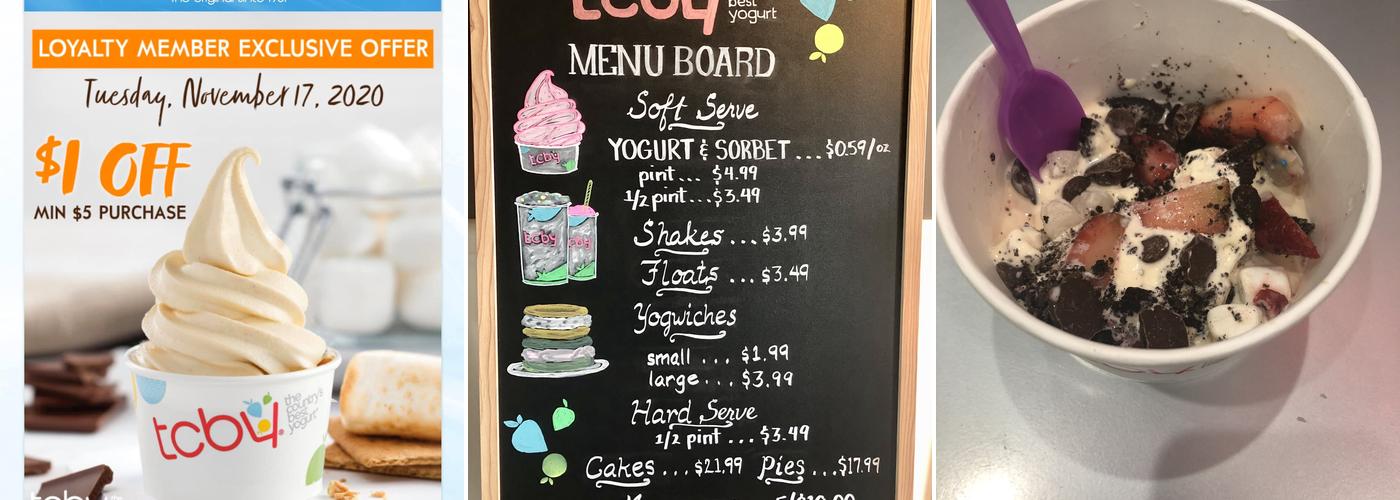 LOYALTY MEMBER EXCLUSIVE OFFER
Tuesday, November 17, 2020
$1 OFF
MIN $5 PURCHASE
tcby
the country's best yogurt
tcby
best
yogurt
MENU BOARD
Soft Serve
YOGURT & SORBET ... $0.59/oz
pint... $4.99
1/2 pint...$3.49
Shakes ... $3.99
Floats ... $3.49
Yogwiches
small ... $1.99
large ... $3.99
Hard Serve
1/2 pint ... $3.49
Cakes ... $21.99 Pies ... $17.99
tcby
tcby
tcby